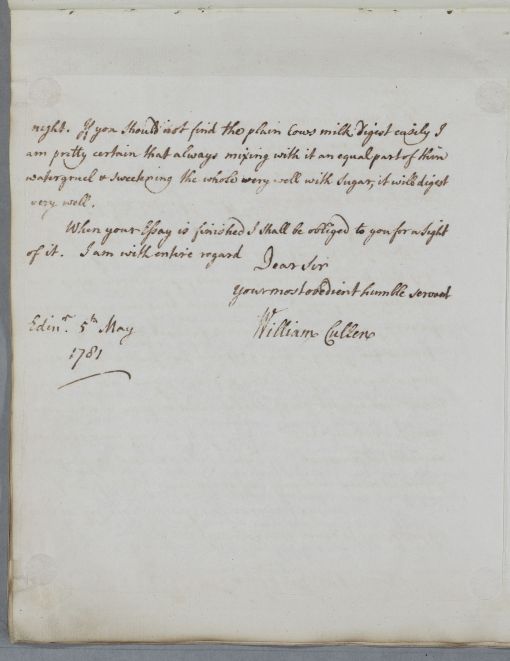 night. If you should not find the plain Cows milk digest easily I
am pretty certain that always mixing with it an equal part of thin
watergruel & sweetening the whole very well with Sugar, it will digest
very well.
When your Essay is finished I shall be obliged to you for a sight
of it. I am with entire regard
Dear Sir
Your most obedient humble servant
William Cullen
Edinr. 5th May
1781